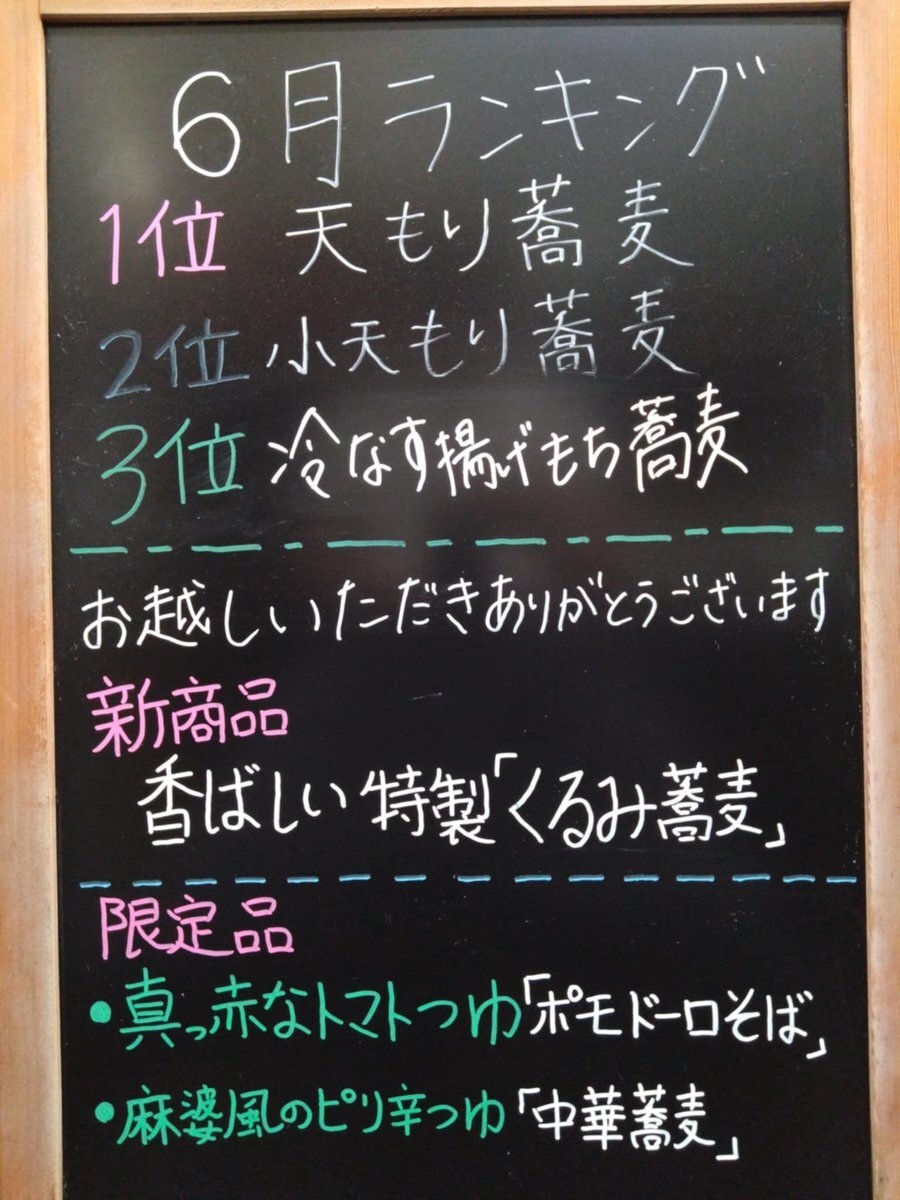 6月ランキング
1位 天もり蕎麦
2位 小天もり蕎麦
3位 冷なす揚げもち蕎麦
お越しいただきありがとうございます
新商品
香ばしい特製「くるみ蕎麦」
限定品
•真っ赤なトマトつゆ「ポモドーロそば」
•麻婆風のピリ辛つゆ「中華蕎麦」